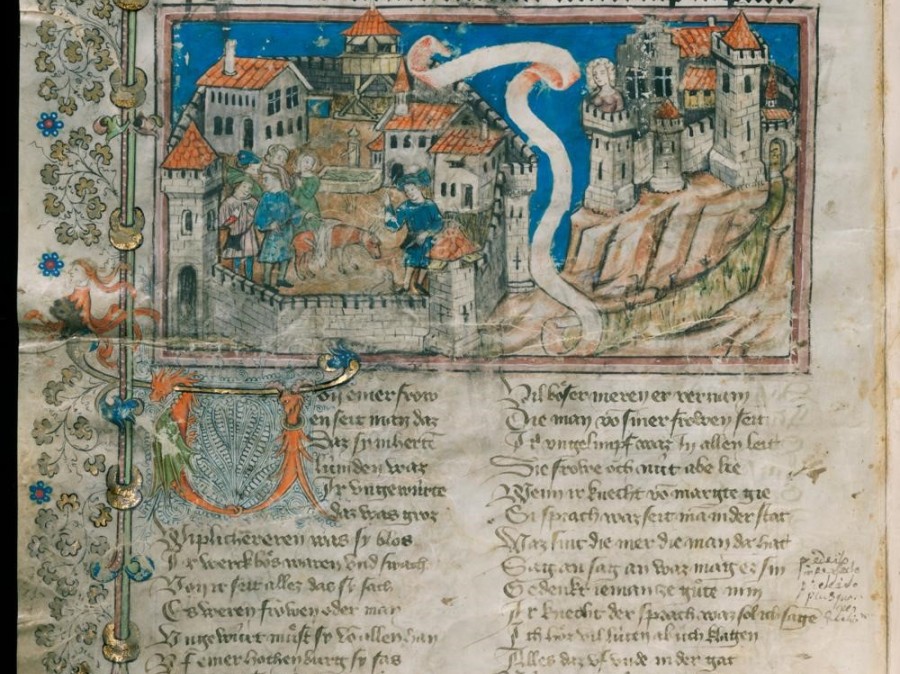 Von einer frow
en seit man daz
Daz sy
lúmden waz
Ir vngewúrte
daz was groz
Wiplicher eren was sy blos
Ir werck bos waren vnd swach
Von ir seit allez das sy sach
Es weren frowen oder man
Vngewúrt must sy vō allen han
Vf einer hochen burg sy sas
Vil boser meren er vernam
Die man vō siner frowen seit
Ir vngelimpf waz In allen leit
Die frowe och nút abe lie
Wenn ir knecht vō margte gie
Si sprach waz seit mā in der stat
Waz sint die mer die man da hat
Sag an sag an waz mag es sin
Gedenkt ieman ze gůte min
Ir knecht der sprach waz sol ich sagē
Ich hor vil lúten ab úch klagen
Alles daz vf vnde in der gat